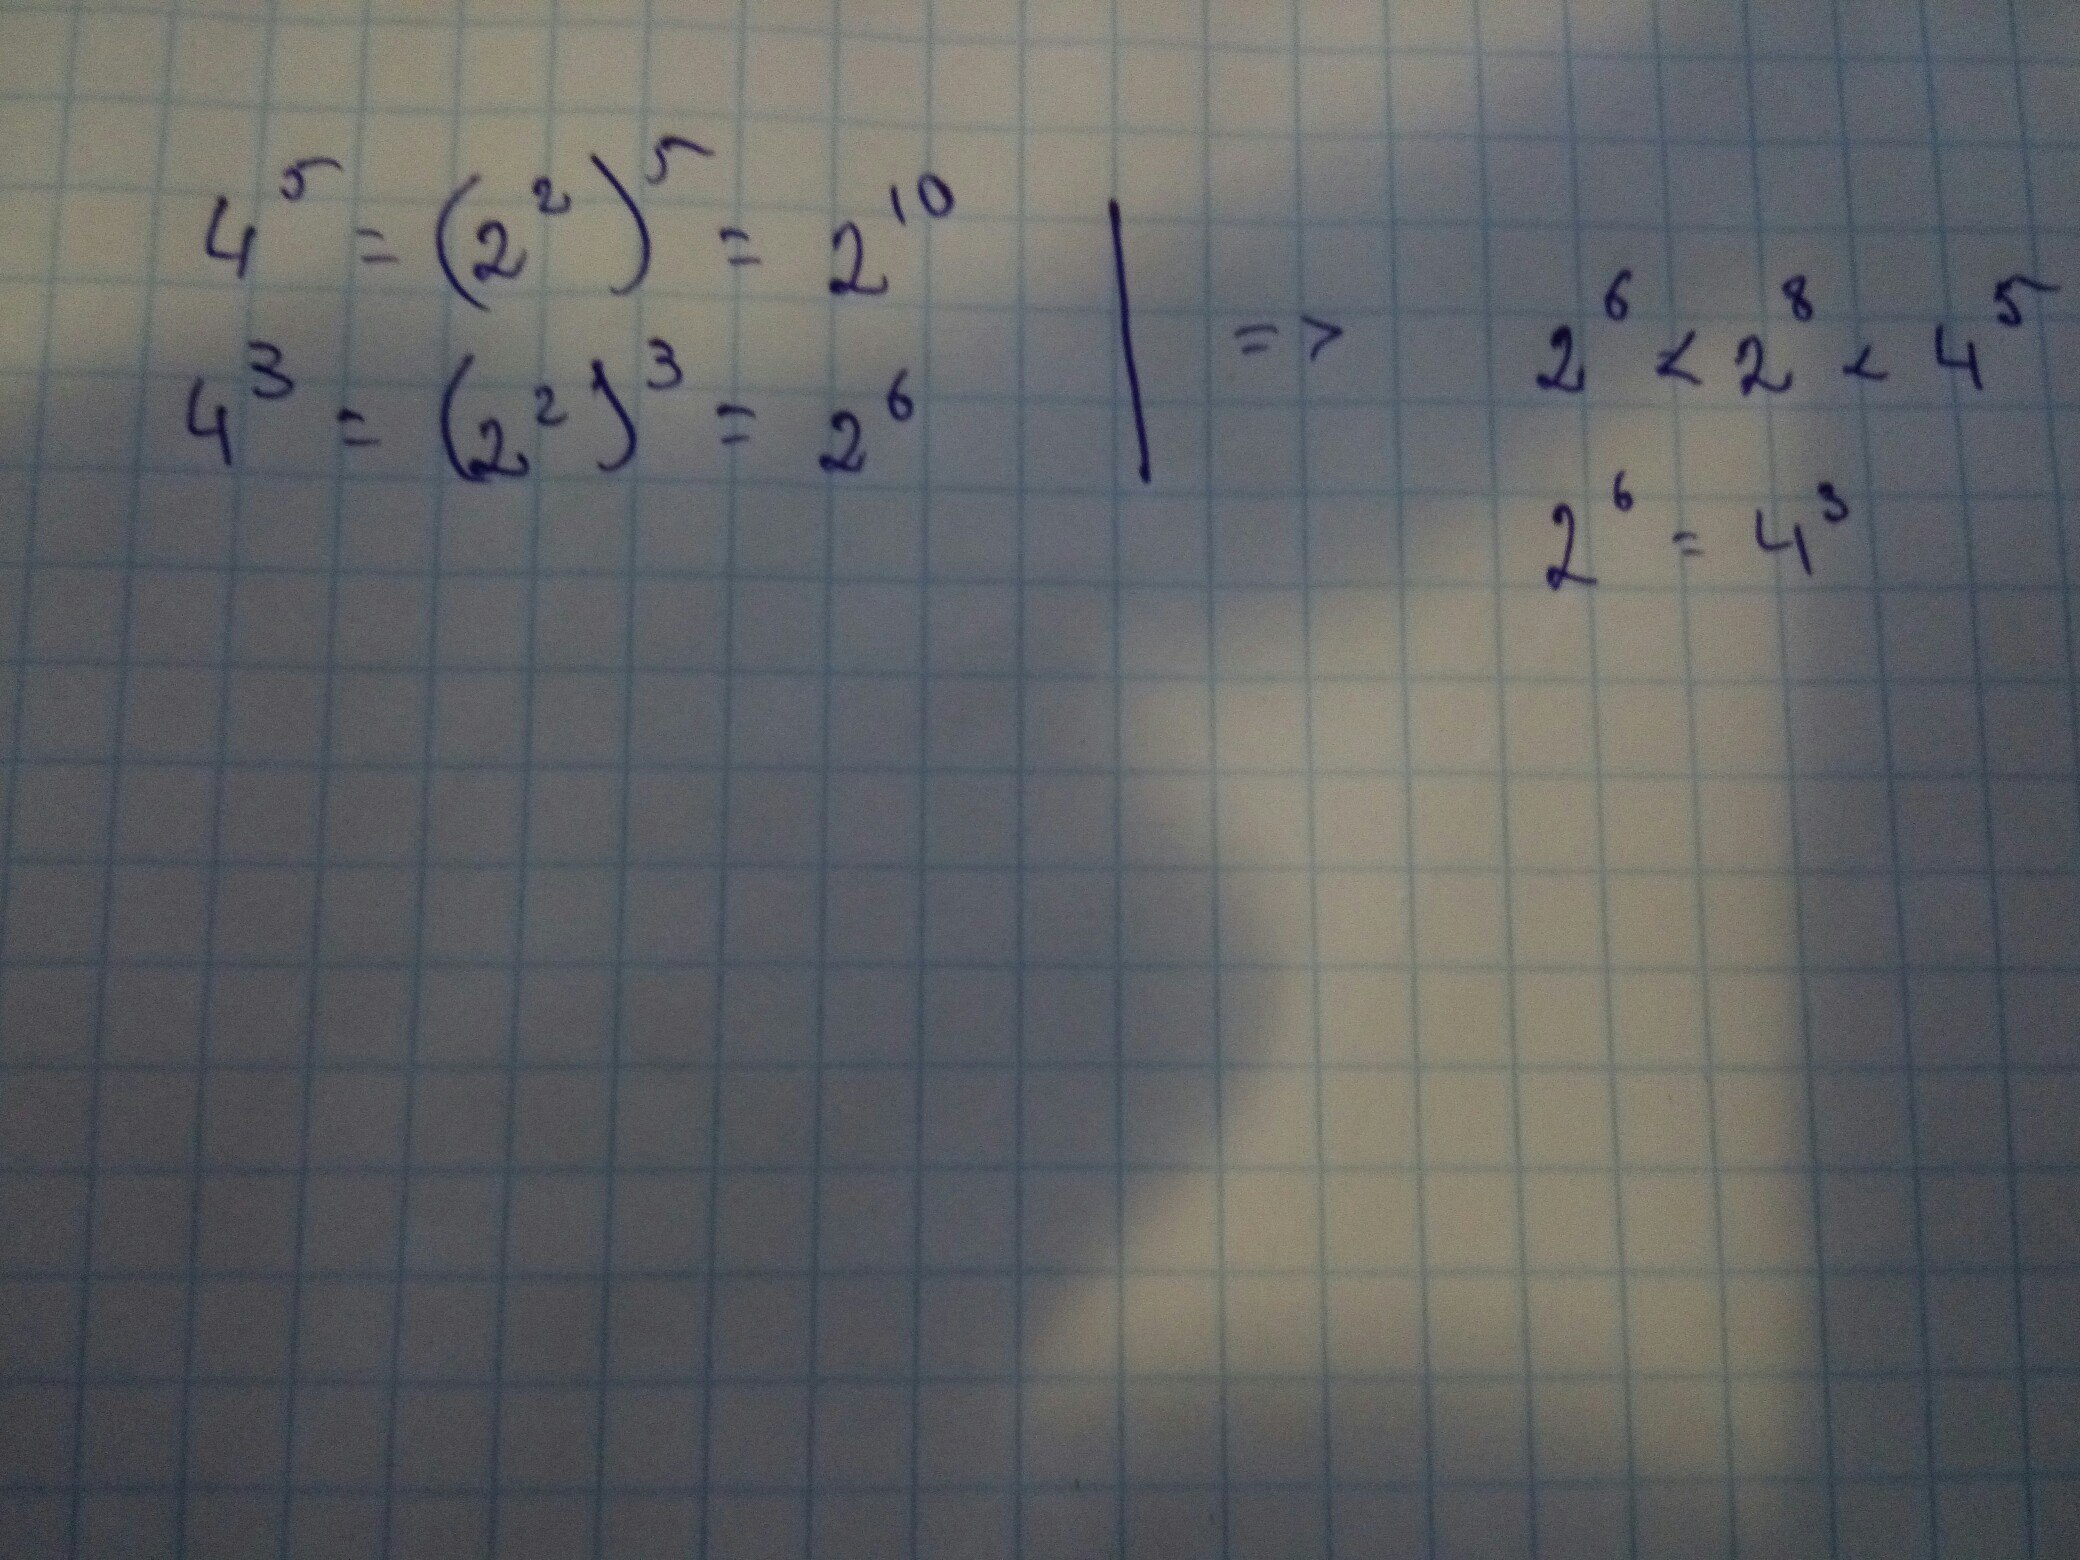 4⁵ = (2²)⁵ = 2¹⁰
4³ = (2²)³ = 2⁶
=> 2⁶ < 2⁸ < 4⁵
2⁶ = 4³